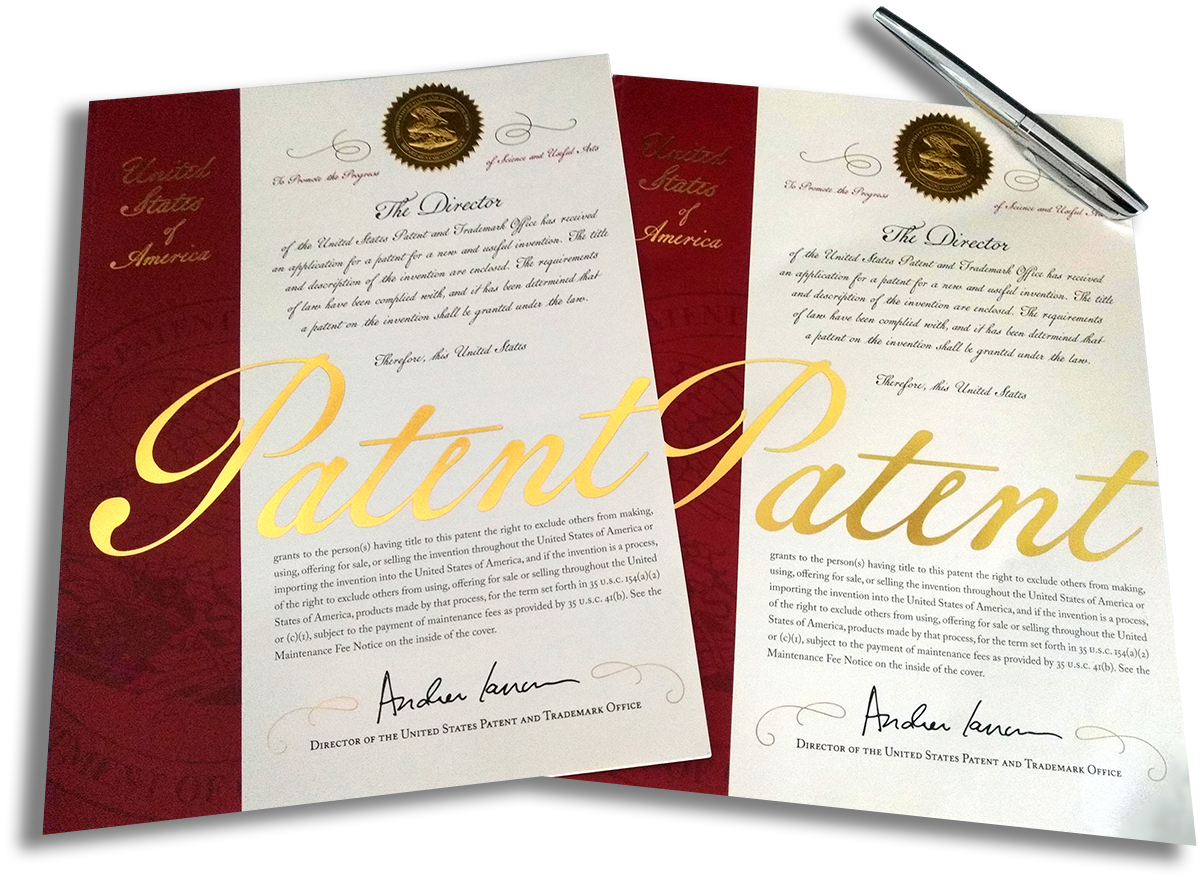 United
States
of
America
To Promote the Progress
of Science and Useful Arts
The Director
of the United States Patent and Trademark Office has received
an application for a patent for a new and useful invention. The title
and description of the invention are enclosed. The requirements
of law have been complied with, and it has been determined that
a patent on the invention shall be granted under the law.
Therefore, this United States
Patent
grants to the person(s) having title to this patent the right to exclude others from making,
using, offering for sale, or selling the invention throughout the United States of America or
importing the invention into the United States of America, and if the invention is a process,
of the right to exclude others from using, offering for sale or selling throughout the United
States of America, products made by that process, for the term set forth in 35 U.S.C. 154(a)(2)
or (c)(1), subject to the payment of maintenance fees as provided by 35 U.S.C. 41(b). See the
Maintenance Fee Notice on the inside of the cover.
Andrei Iancu
Director of the United States Patent and Trademark Office
United
States
of
America
To Promote the Progress
of Science and Useful
The Director
of the United States Patent and Trademark Office has received
an application for a patent for a new and useful invention. The title
and description of the invention are enclosed. The requirements
of law have been complied with, and it has been determined that
a patent on the invention shall be granted under the law.
Therefore, this United States
Patent
grants to the person(s) having title to this patent the right to exclude others from making,
using, offering for sale, or selling the invention throughout the United States of America or
importing the invention into the United States of America, and if the invention is a process,
of the right to exclude others from using, offering for sale or selling throughout the United
States of America, products made by that process, for the term set forth in 35 U.S.C. 154(a)(2)
or (c)(1), subject to the payment of maintenance fees as provided by 35 U.S.C. 41(b). See the
Maintenance Fee Notice on the inside of the cover.
Andrei Iancu
Director of the United States Patent and Trademark Office